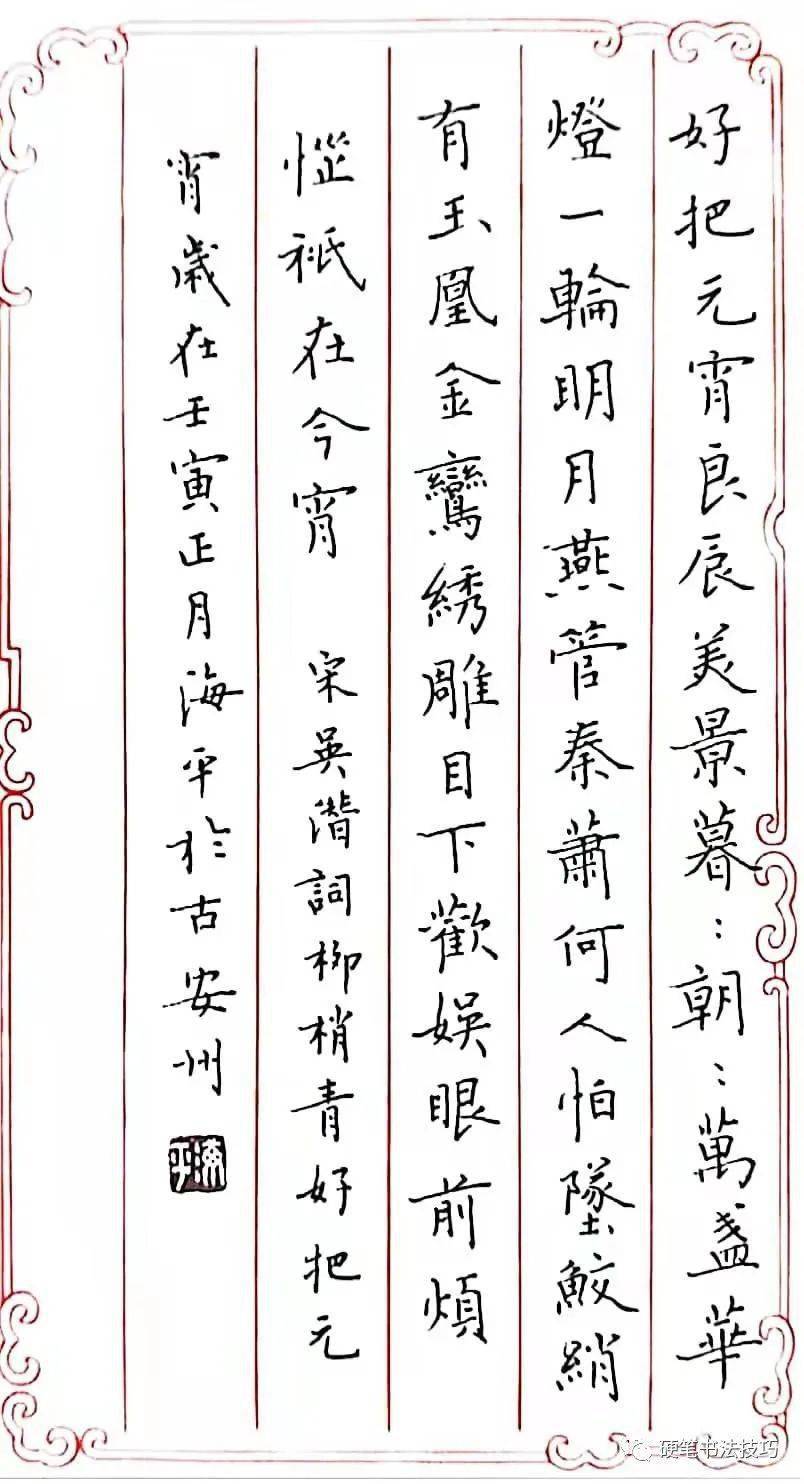 好把元宵良辰美景暮：朝：萬盞華
燈一輪明月燕管秦蕭何人怕墜鮫綃
有玉凰金鸞綉雕目下歡娛眼前煩
惱祇在今宵 宋吳潛詞柳梢青好把元
宵歲在壬寅正月海平於古安州
海平
硬笔书法技巧